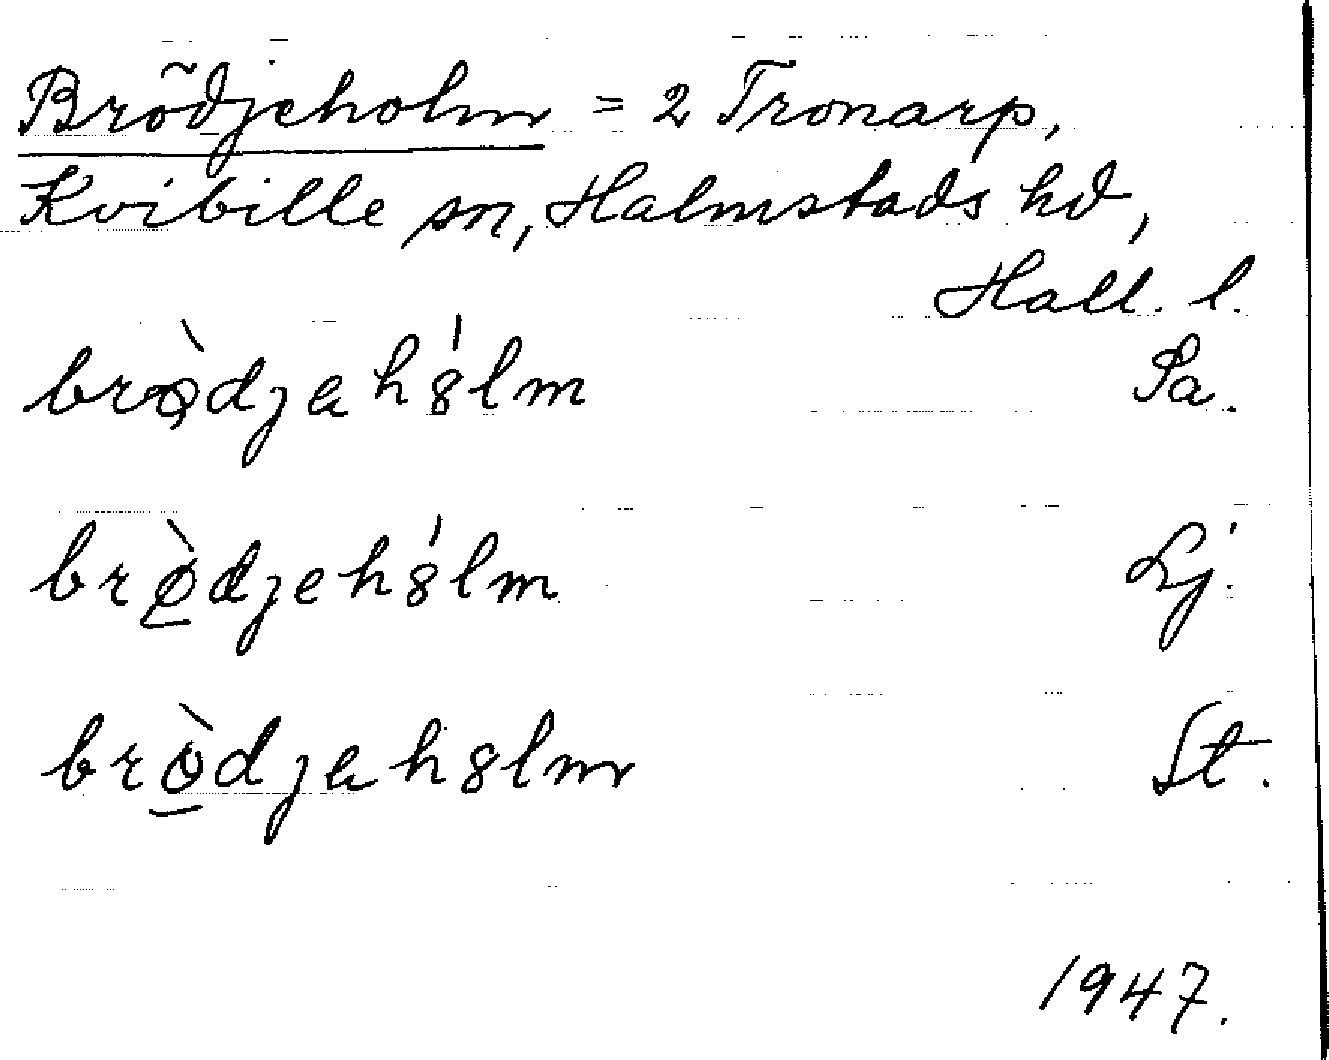 Brödjeholm = 2 Tronarp,
Kvibille sn, Halmstads hd,
Hall. l.
brò̱djah8́lm Pa.
brø̱̀djeh8́lm Lj.
brò̱djah8lm St.
1947.